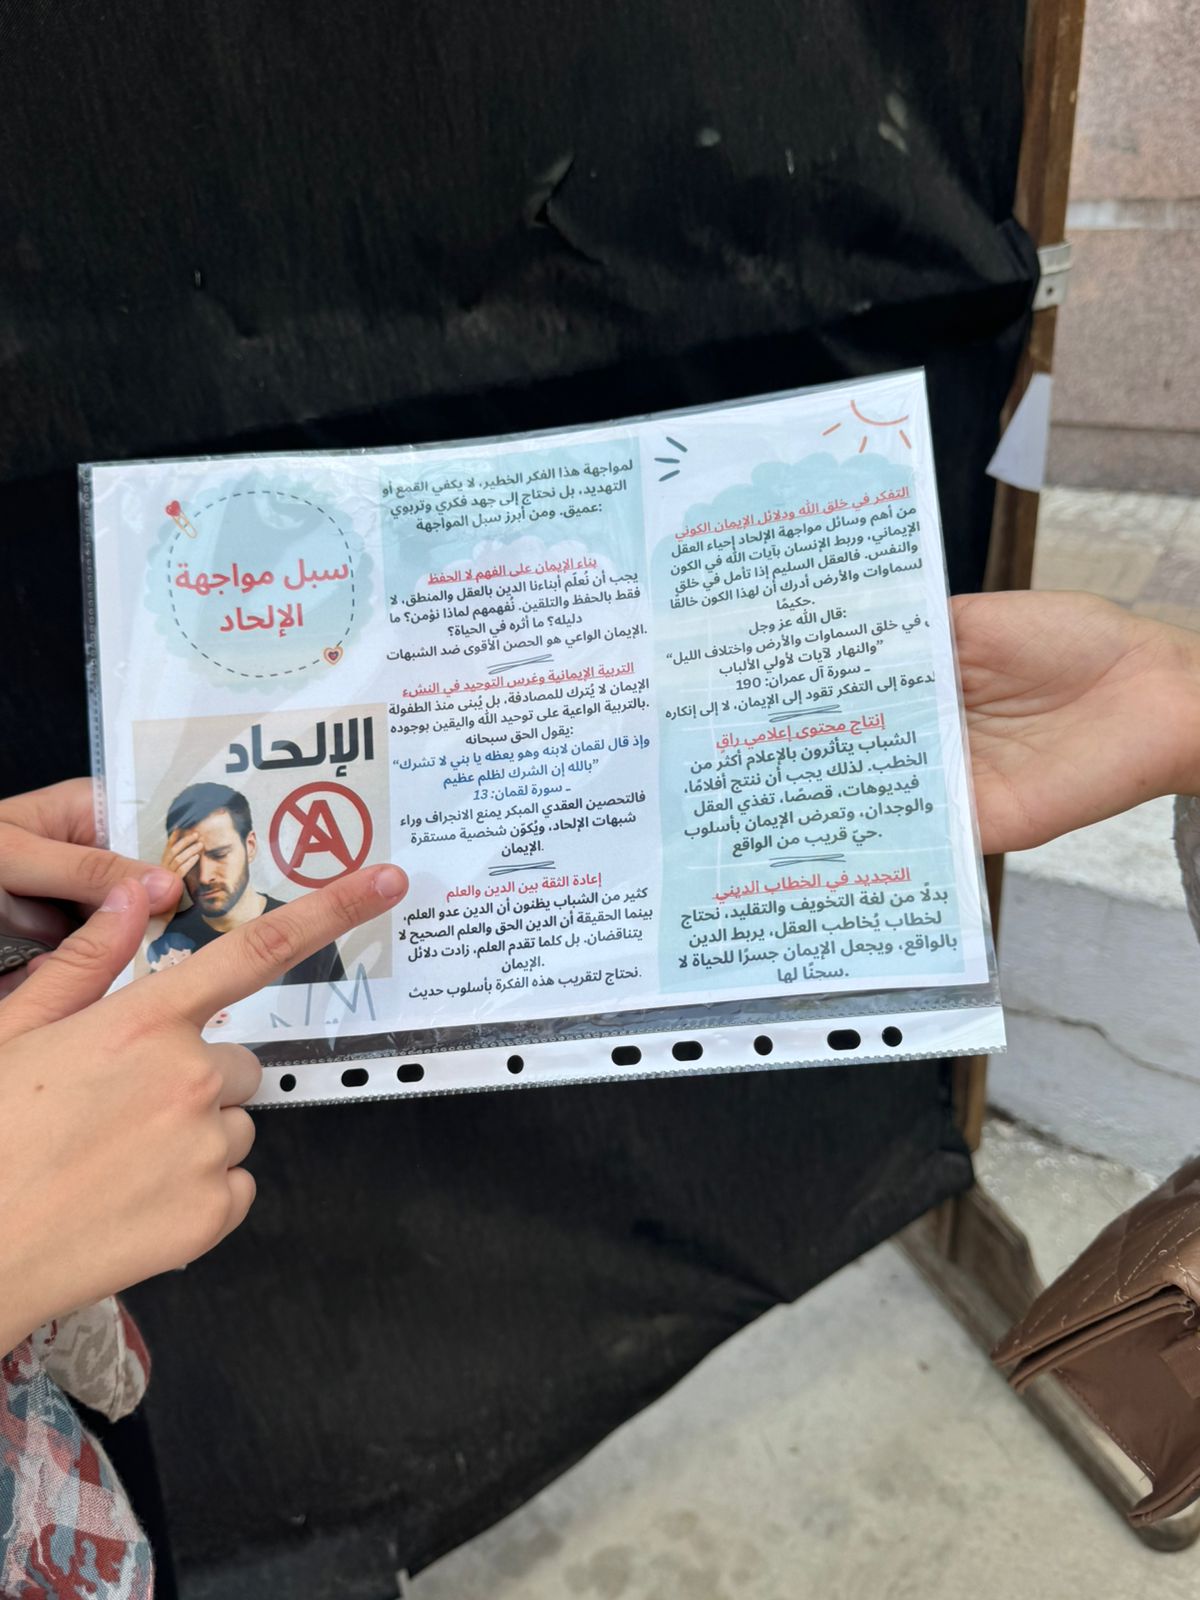 سبل مواجهة
الإلحاد
الإلحاد
لمواجهة هذا الفكر الخطير، لا يكفي القمع أو
التهديد، بل نحتاج إلى جهد فكري وتربوي
عميق. ومن أبرز سبل المواجهة:
بناء الإيمان على الفهم لا الحفظ
يجب أن نُعلّم أبناءنا الدين بالعقل والمنطق، لا
فقط بالحفظ والتلقين. نُفهمهم لماذا نؤمن؟ ما
دليله؟ ما أثره في الحياة؟
الإيمان الواعي هو الحصن الأقوى ضد الشبهات.
التربية الإيمانية وغرس التوحيد في النشء
الإيمان لا يُترك للمصادفة، بل يُبنى منذ الطفولة
بالتربية الواعية على توحيد الله واليقين بوجوده.
يقول الحق سبحانه:
وإذ قال لقمان لابنه وهو يعظه يا بني لا تشرك“
”بالله إن الشرك لظلم عظيم
ـ سورة لقمان: 13
فالتحصين العقدي المبكر يمنع الانجراف وراء
شبهات الإلحاد، ويُكوّن شخصية مستقرة
الإيمان.
إعادة الثقة بين الدين والعلم
كثير من الشباب يظنون أن الدين عدو العلم،
بينما الحقيقة أن الدين الحق والعلم الصحيح لا
يتناقضان. بل كلما تقدم العلم، زادت دلائل
الإيمان.
نحتاج لتقريب هذه الفكرة بأسلوب حديث.
التفكر في خلق الله ودلائل الإيمان الكوني
من أهم وسائل مواجهة الإلحاد إحياء العقل
الإيماني، وربط الإنسان بآيات الله في الكون
والنفس. فالعقل السليم إذا تأمل في خلق
لسماوات والأرض أدرك أن لهذا الكون خالقًا
حكيمًا.
قال الله عز وجل:
في خلق السماوات والأرض واختلاف الليل“
”والنهار لآيات لأولي الألباب
ـ سورة آل عمران: 190
لدعوة إلى التفكر تقود إلى الإيمان، لا إلى إنكاره
إنتاج محتوى إعلامي راقٍ
الشباب يتأثرون بالإعلام أكثر من
الخطب. لذلك يجب أن ننتج أفلامًا،
فيديوهات، قصصًا، تغذي العقل
والوجدان، وتعرض الإيمان بأسلوب
حيّ قريب من الواقع.
التجديد في الخطاب الديني
بدلًا من لغة التخويف والتقليد، نحتاج
لخطاب يُخاطب العقل، يربط الدين
بالواقع، ويجعل الإيمان جسرًا للحياة لا
سجنًا لها.